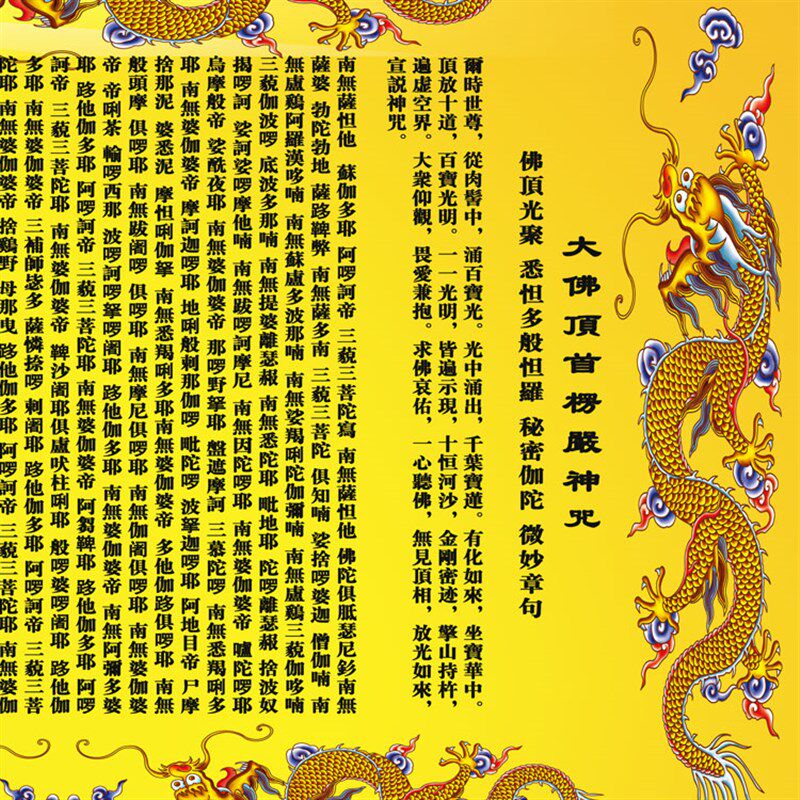 大佛頂首楞嚴神咒
佛頂光聚 悉怛多般怛羅 秘密伽陀 微妙章句
爾時世尊，從肉髻中，涌百寶光。光中涌出，千葉寶蓮。有化如來，坐寶華中。
頂放十道，百寶光明。一一光明，皆遍示現，十恒河沙，金剛密迹，擎山持杵，
遍虛空界。大衆仰觀，畏愛兼抱。求佛哀佑，一心聽佛，無見頂相，放光如來，
宣説神咒。
南無薩怛他 蘇伽多耶 阿啰訶帝 三藐三菩陀寫 南無薩怛他 佛陀俱胝瑟尼釤 南無
薩婆 勃陀勃地 薩跢鞞弊 南無薩多南 三藐三菩陀 俱知喃 娑捨啰婆迦 僧伽喃 南
無盧鷄阿羅漢哆喃 南無蘇盧多波那喃 南無娑羯唎陀伽彌喃 南無盧鷄三藐伽哆喃
三藐伽波啰 底波多那喃 南無提婆離瑟赧 南無悉陀耶 毗地耶 陀啰離瑟赧 捨波奴
揭啰訶 娑訶娑啰摩他喃 南無跋啰訶摩尼 南無因陀啰耶 南無婆伽婆帝 嚧陀啰耶
烏摩般帝 娑酰夜耶 南無婆伽婆帝 那啰野拏耶 盤遮摩訶 三慕陀啰 南無悉羯唎多
耶 南無婆伽婆帝 摩訶迦啰耶 地唎般剌那伽啰 毗陀啰 波拏迦啰耶 阿地目帝 尸摩
捨那泥 婆悉泥 摩怛唎伽拏 南無悉羯唎多耶 南無婆伽婆帝 多他伽跢俱啰耶 南無
般頭摩 俱啰耶 南無跋闍啰 俱啰耶 南無摩尼俱啰耶 南無伽闍俱啰耶 南無婆伽婆
帝 帝唎茶 輸啰西那 波啰訶啰拏啰闍耶 跢他伽多耶 南無婆伽婆帝 南無阿彌多婆
耶 跢他伽多耶 阿啰訶帝 三藐三菩陀耶 南無婆伽婆帝 阿芻鞞耶 跢他伽多耶 阿啰
訶帝 三藐三菩陀耶 南無婆伽婆帝 鞞沙闍耶俱盧吠柱唎耶 般啰婆啰闍耶 跢他伽
多耶 南無婆伽婆帝 三補師毖多 薩憐捺啰 剌闍耶 跢他伽多耶 阿啰訶帝 三藐三菩
陀耶 南無婆伽婆帝 捨鷄野 母那曳 跢他伽多耶 阿啰訶帝 三藐三菩陀耶 南無婆伽